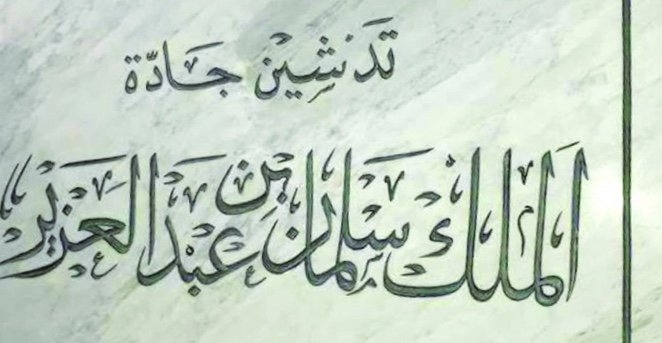 تدشين جادّة
الملك سلمان بن عبدالعزيز